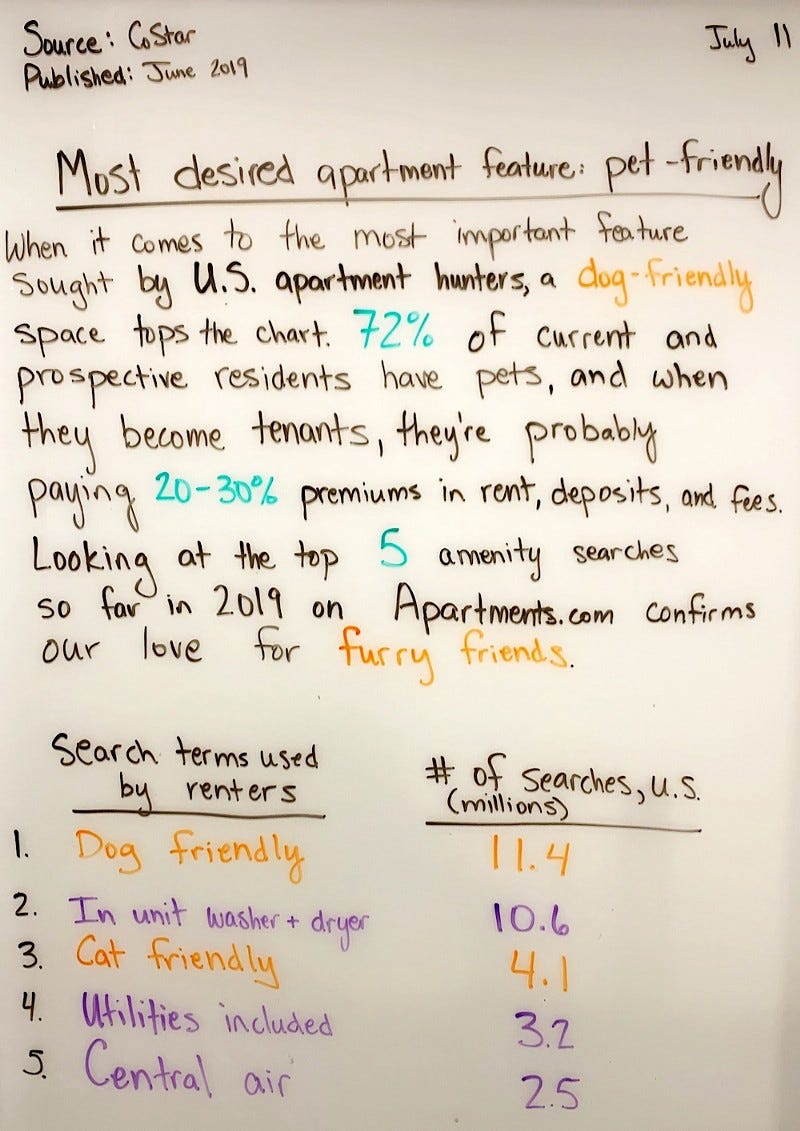 Source: CoStar
July 11
Published: June 2019
Most desired apartment feature: pet-friendly
When it comes to the most important feature
sought by U.S. apartment hunters, a dog-friendly
space tops the chart. 72% of current and
prospective residents have pets, and when
they become tenants, they're probably
paying 20-30% premiums in rent, deposits, and fees.
Looking at the top 5 amenity searches
so far in 2019 on Apartments.com confirms
our love for furry friends.
Search terms used
by renters
# of searches, U.S.
(millions)
1. Dog friendly 11.4
2. In unit washer + dryer 10.6
3. Cat friendly 4.1
4. Utilities included 3.2
5. Central air 2.5